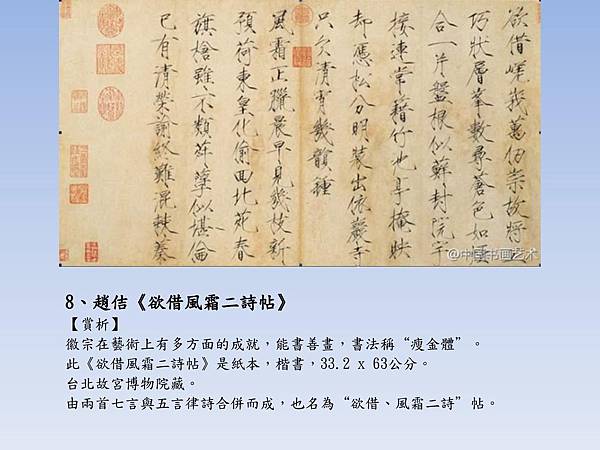 欲借嵯峩萬仞崇故將工
巧狀層峯數尋蒼色如煙
合一片盤根似蘚封院宇
接連常藉竹池亭掩映
却憑松分明裝出依巖寺
只欠清宵幾韻鍾
風霜正臘晨早見幾枝新
預荷東皇化偷回北苑春
旗槍雖不類荈蘖似堪倫
已有清榮諭終難混棘蓁
@中国书画艺术
8、趙佶《欲借風霜二詩帖》
【賞析】
徽宗在藝術上有多方面的成就，能書善畫，書法稱“瘦金體”。
此《欲借風霜二詩帖》是紙本，楷書，33.2 x 63公分。
台北故宮博物院藏。
由兩首七言與五言律詩合併而成，也名為“欲借、風霜二詩”帖。